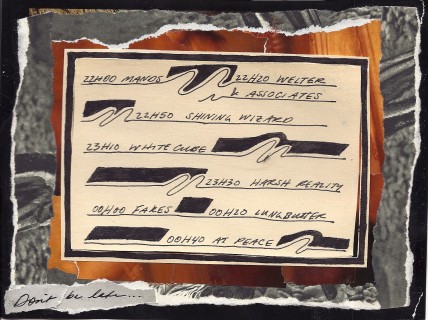 22H00 MANOS 22H20 WELTER
& ASSOCIATES
22H50 SHINING WIZARD
23H10 WHITE CUBE
23H30 HARSH REALITY
00H00 FAKES 00H20 LUNGBUTTER
00H40 AT PEACE
Don't be late...